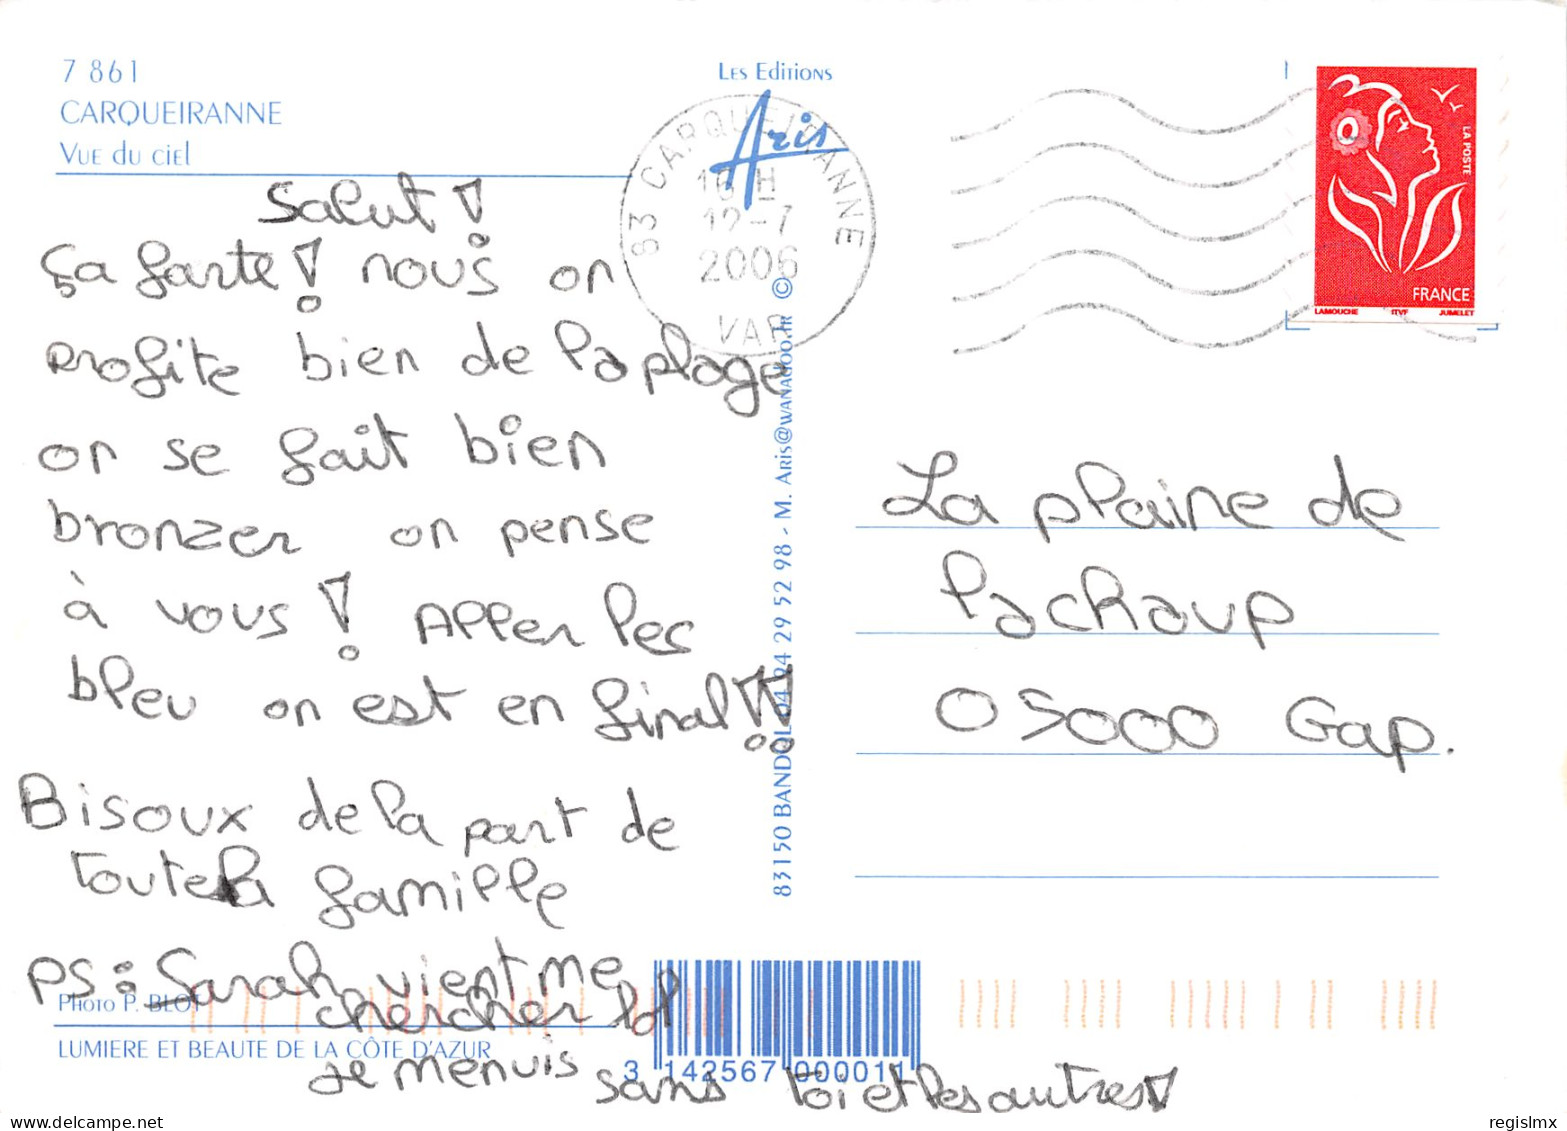 7 861
CARQUEIRANNE
Vue du ciel
Les Editions
Aris
83 CARQUEIRANNE
12-7
2006
VAR
LA POSTE
FRANCE
LAMOUCHE ITVF JUMELET
Salut !
ça farte ! nous on
profite bien de la plage
on se fait bien
bronzer on pense
à vous ! Aller les
bleu on est en final !!
Bisoux de la part de
toute la famille
PS : Sarah vient me
chercher lol
je m'ennuis sans toi et les autres !
La plaine de
Lachaup
05000 Gap.
83150 BANDOL 04 94 29 52 98 - M. Aris@wanadoo.fr ©
Photo P. BLOT
LUMIERE ET BEAUTE DE LA CÔTE D'AZUR
3 142567 000011
www.delcampe.net
regislmx